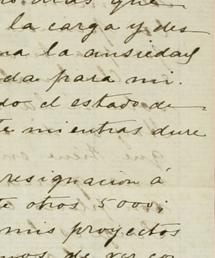 que
la carga y des
na la ansiedad
da para mi.
do el estado de
mientras dure
resignacion á
otros 5000;
mis proyectos
de ver con